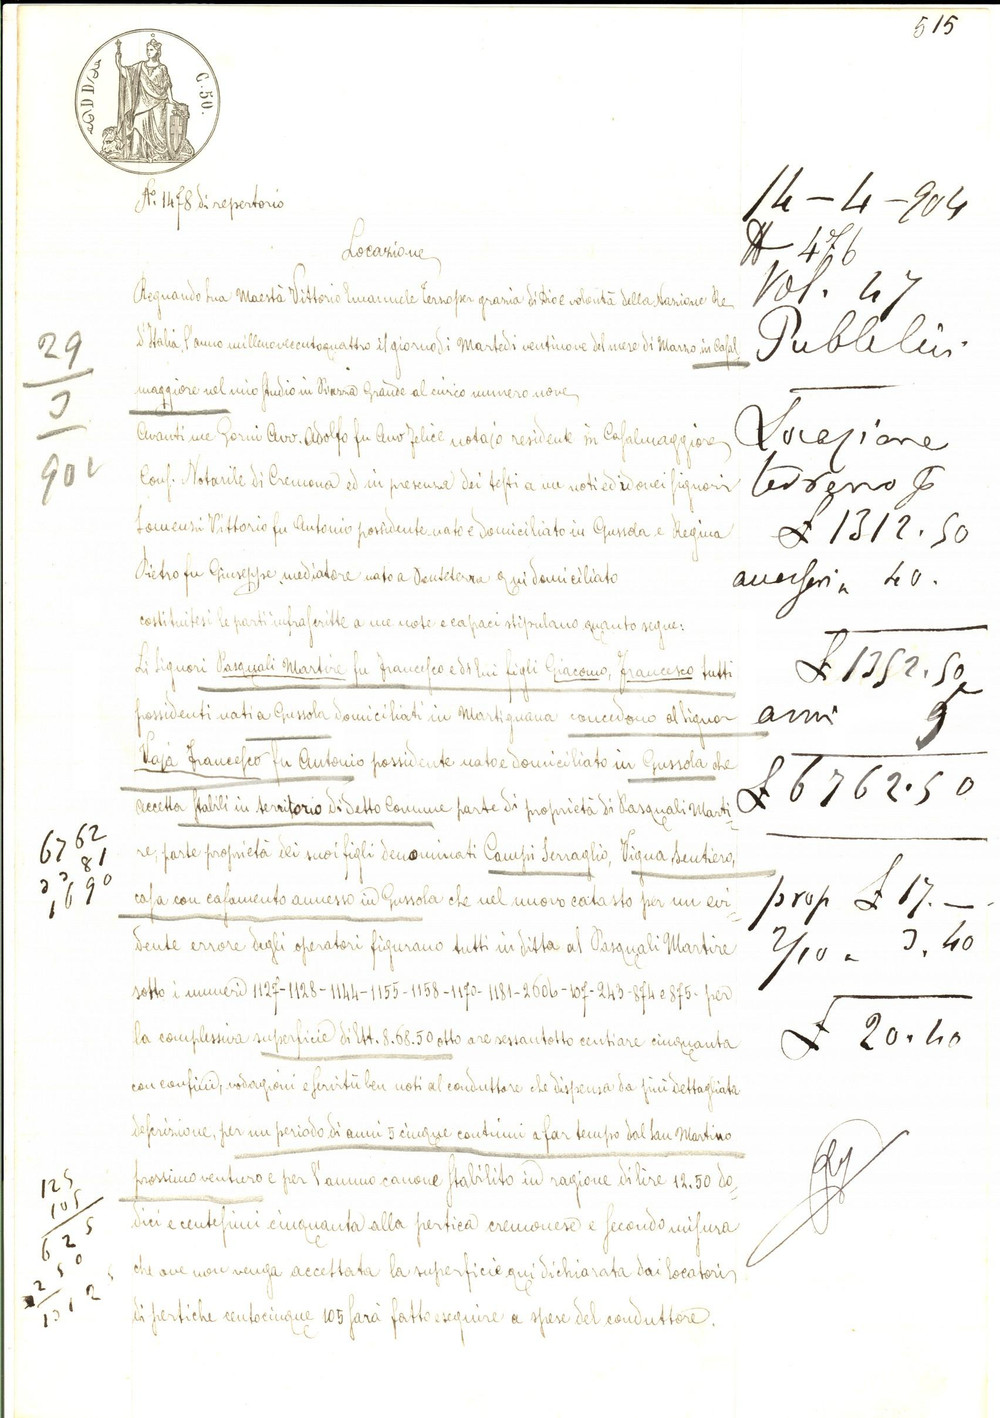 515
C. 50.
No. 1478 di repertorio
Locazione
Regnando Sua Maestà Vittorio Emanuele Terzo per grazia di Dio e volontà della Nazione Re
d'Italia, l'anno millenovecentoquattro il giorno di Martedì ventinove del mese di Marzo in Casal
maggiore nel mio studio in Piazza Grande al civico numero nove
Avanti me Gorni Avv. Adolfo fu Avv. Felice notajo residente in Casalmaggiore
Cons. Notarile di Cremona ed in presenza dei testi a me noti ed idonei Signori
Vittorio fu Antonio possidente nato e domiciliato in Gussola e Regina
Pietro fu Giuseppe mediatore nato a qui domiciliato
costituitesi le parti infrascritte a me note e capaci stipulano quanto segue:
Li Signori Pasquali Martire fu Francesco e di lui figli Giacomo, Francesco tutti
possidenti nati a Gussola domiciliati in Martignana concedono al Signor
Vaja Francesco fu Antonio possidente nato e domiciliato in Gussola che
accetta stabili in territorio di detto Comune parte di proprietà di Pasquali Marti-
re, parte proprietà dei suoi figli denominati Campi Serraglio, Vigna, Sentiero,
casa con casamento annesso in Gussola che nel nuovo catasto per un evi-
dente errore degli operatori figurano tutti in ditta al Pasquali Martire
sotto i numeri 1127-1128-1144-1155-1158-1170-1181-2606-107-243-874 e 875- per
la complessiva superficie di Ett. 8.68.50 otto are sessantotto centiare cinquanta
con confini, vodagioni e servitù ben noti al conduttore che dispensa da più dettagliata
descrizione, per un periodo di anni 5 cinque continui a far tempo dal San Martino
prossimo venturo e per l'annuo canone stabilito in ragione di lire 12.50 do-
dici e centesimi cinquanta alla pertica cremonese e secondo misura
che ove non venga accettata la superficie qui dichiarata dai locatori
di pertiche centocinque 105 sarà fatto eseguire a spese del conduttore.
14-4-904
N 476
Vol. 47
Locazione
terreno
£ 1312.50
40.
£ 1352.50
anni 5
£ 6762.50
prop £ 17.—
2/10 " 3.40
£ 20.40
29
3
904
6762
3381
1690
125
105
625
1250
13125